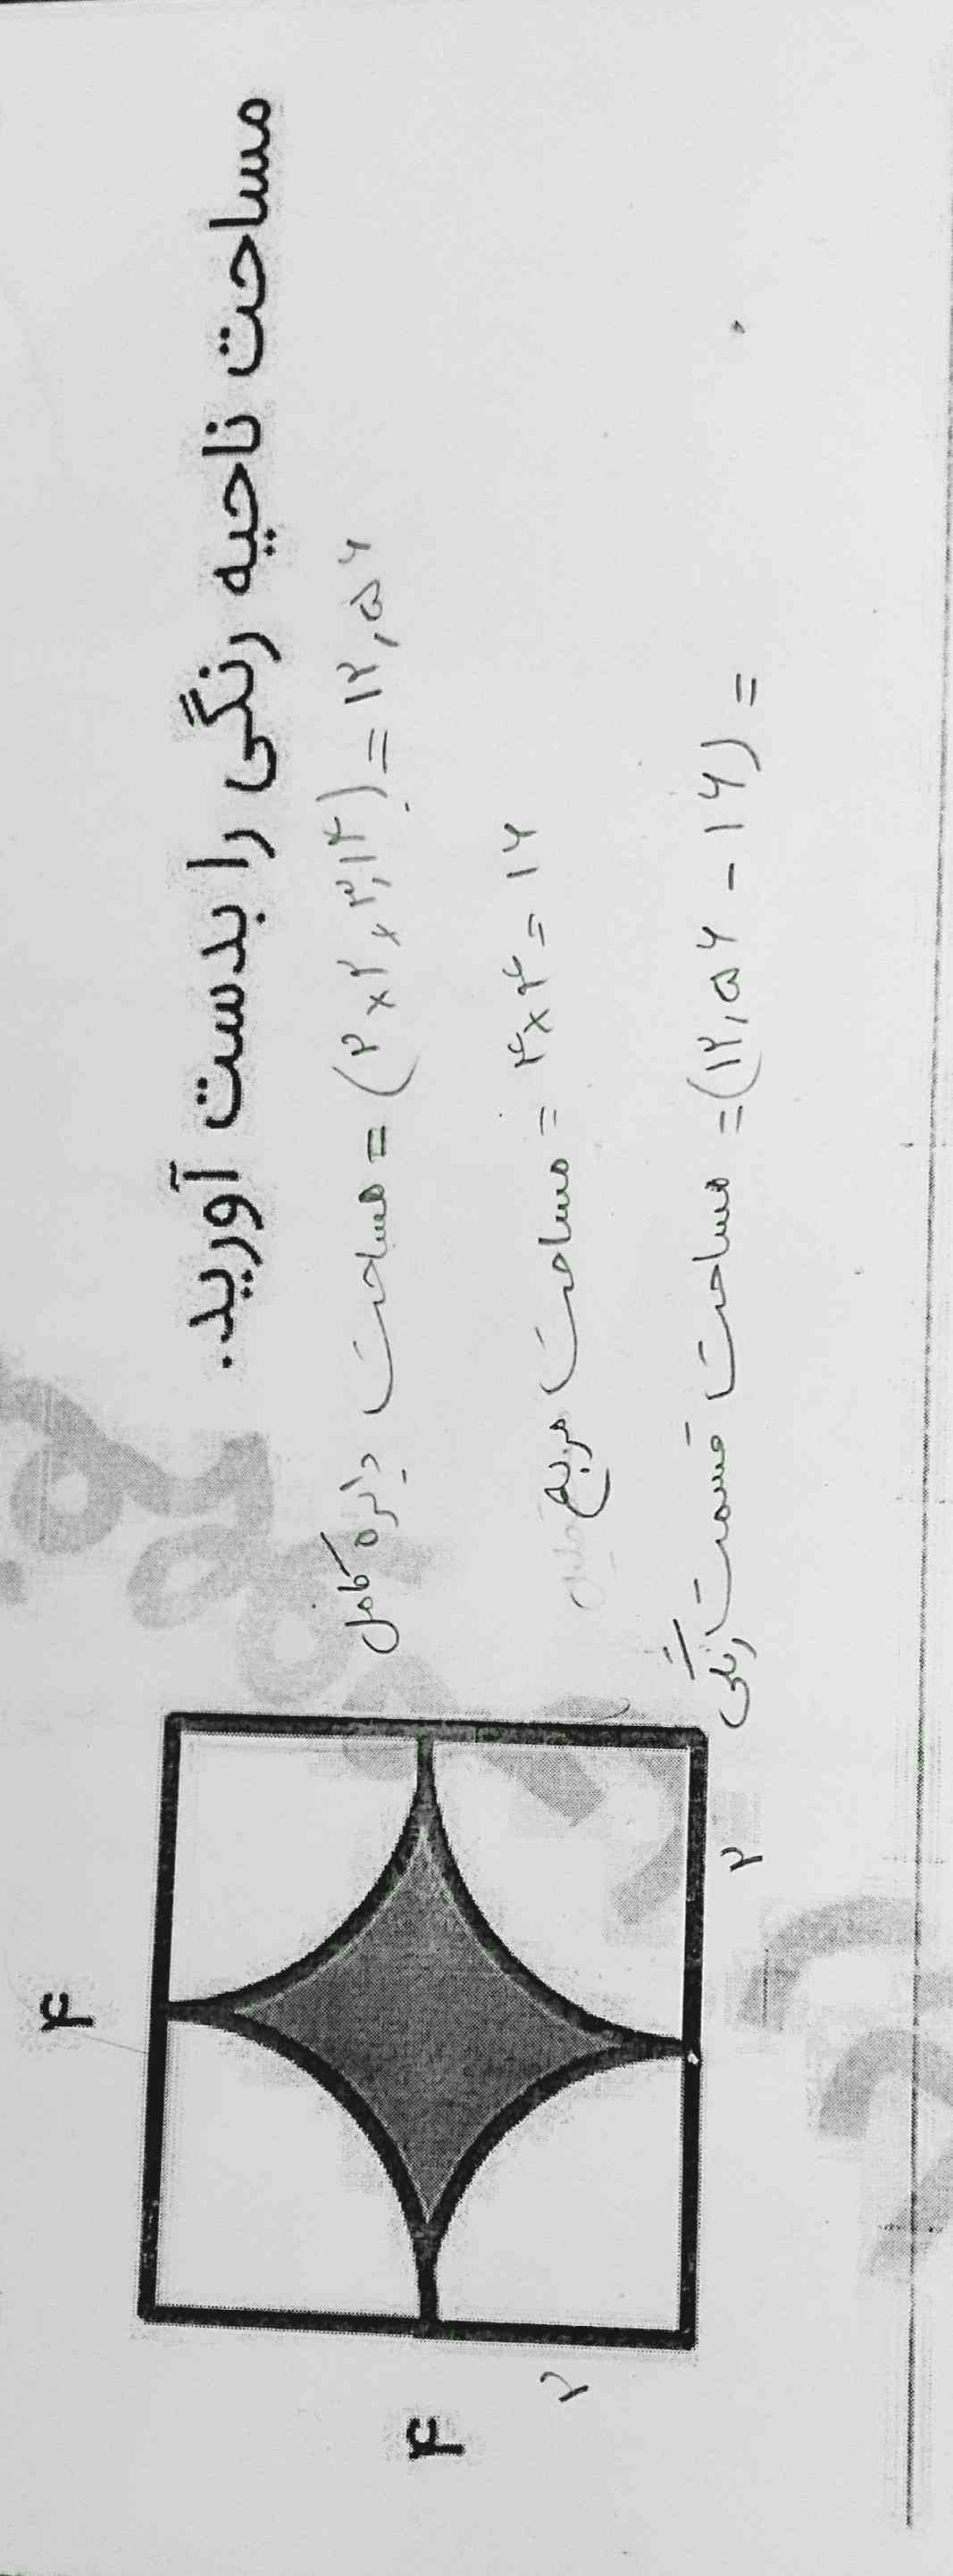 مساحت ناحیه رنگی را بدست آورید.
مساحت دایره کامل = (۲×۲×۳,۱۴) = ۱۲,۵۶
مساحت مربع = ۴×۴ = ۱۶
مساحت قسمت رنگی = (۱۲,۵۶ - ۱۶) =
۴
۴
۲
۲